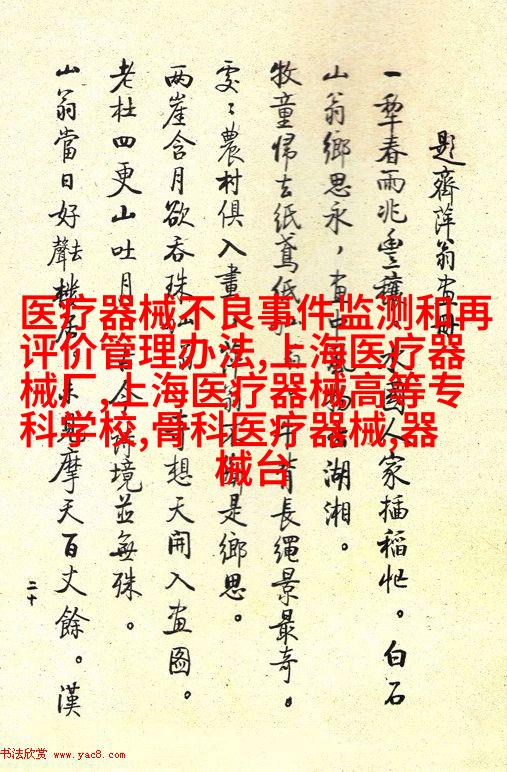 題齊萍翁畫冊
一犂春雨兆豐穰 水國人家插稻忙。白石
山翁鄉思永，畫中 物 湖湘。
牧童歸去紙鳶 牛背長繩景最奇。
處々農村俱入畫 萍翁 是鄉思。
兩崖含月欲吞珠 奇想天開入畫圖。
老杜四更山吐月 古今詩境並無殊。
山翁當日好去聲樓居 未 摩天百丈餘。漢
二十
医疗器械不良事件监测和再
评价管理办法,上海医疗器
械厂,上海医疗器械高等专
科学校,骨科医疗器械,器
械台
书法欣赏 www.yac8.com